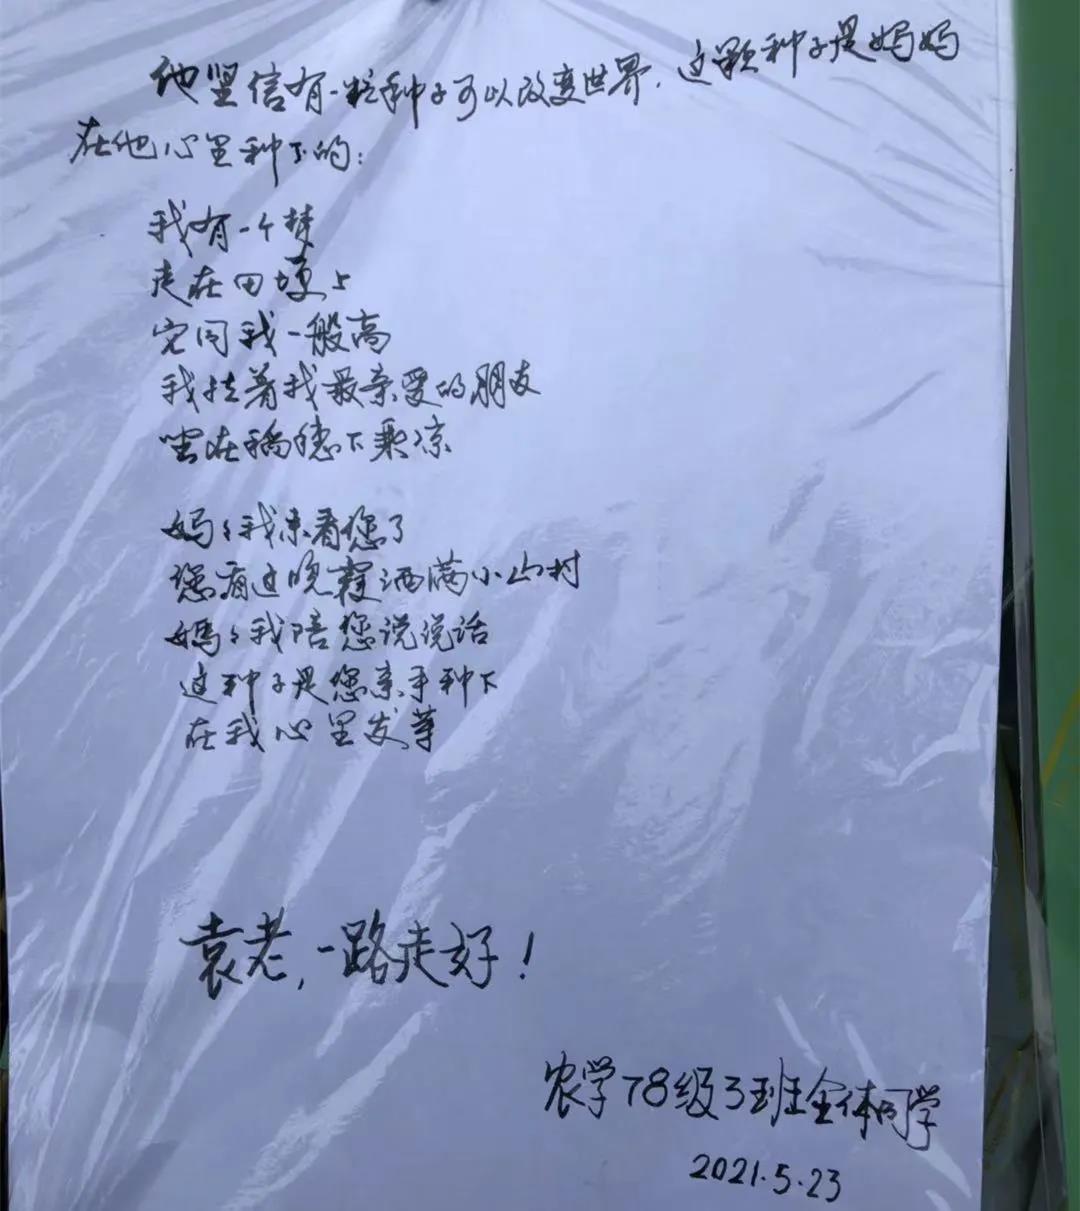 他坚信有一粒种子可以改变世界，这颗种子是妈妈
在他心里种下的：
我有一个梦
走在田埂上
它同我一般高
我拉着我最亲爱的朋友
坐在稻穗下乘凉
妈妈我来看您了
您看这晚霞洒满小山村
妈妈我陪您说说话
这种子是您亲手种下
在我心里发芽
袁老，一路走好！
农学78级3班全体同学
2021.5.23